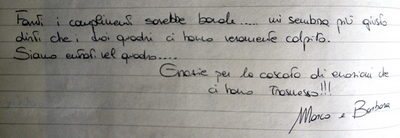 Farti i complimenti sarebbe banale..... mi sembra più giusto
dirti che i tuoi quadri ci hanno veramente colpito.
Siamo entrati nel quadro.....
Grazie per la cascata di emozioni che
ci hanno trasmesso!!!
Marco e Barbara